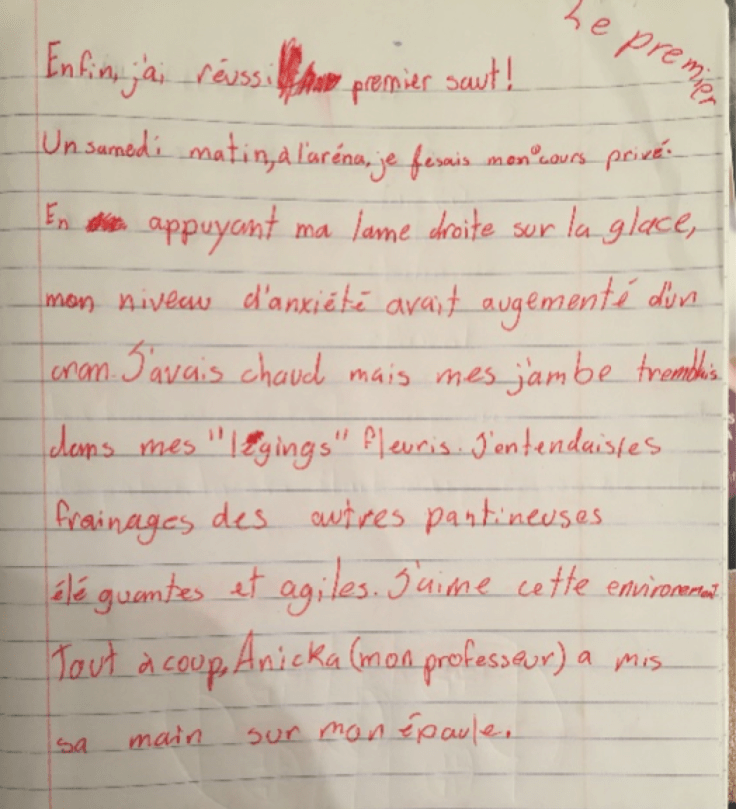 Le premier
Enfin, j'ai réussi premier saut!
Un samedi matin, à l'aréna, je fesais mon cours privé.
En appuyant ma lame droite sur la glace,
mon niveau d'anxiété avait augementé d'un
cran. J'avais chaud mais mes jambe tremblais
dans mes "légings" fleuris. J'entendais les
frainages des autres pantineuses
éléguantes et agiles. J'aime cette environement.
Tout à coup, Anicka (mon professeur) a mis
sa main sur mon épaule.